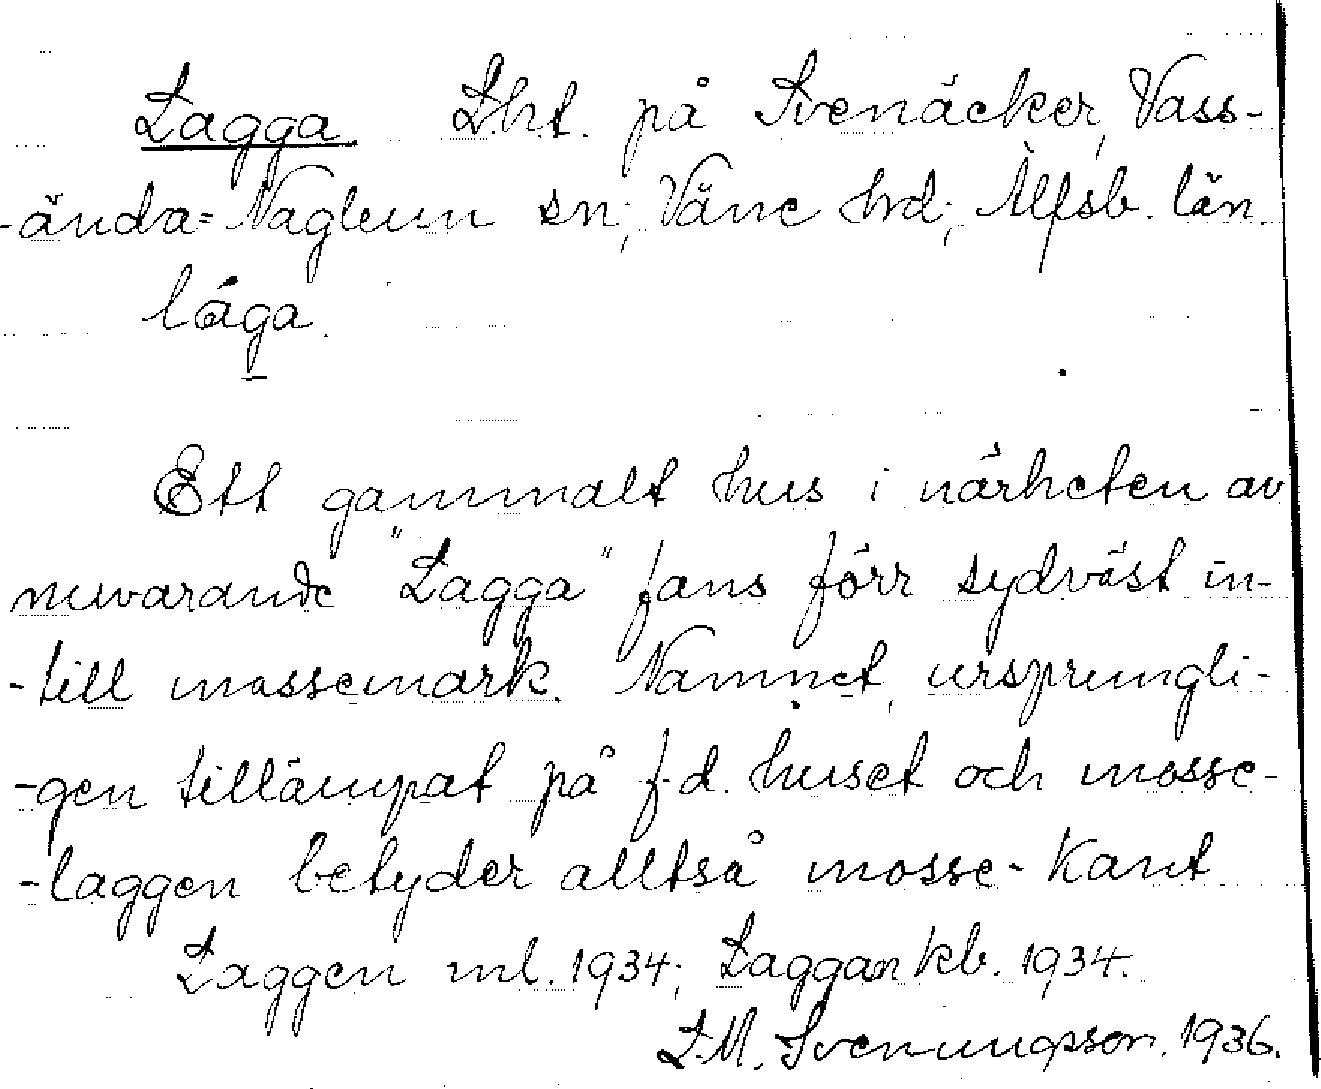 Lagga Lht. på Svenäcker, Vass-
-ända=Naglum sn; Väne hrd; Älfsb. län.
lága.
Ett gammalt hus i närheten av
nuvarande "Lagga" fans förr sydväst in-
-till mossemark. Namnet, ursprungli-
-gen tillämpat på f.d. huset och mosse-
-laggen betyder alltså mosse-kant
Laggen ml. 1934; Laggan kb. 1934.
L.M. Svenungsson. 1936.